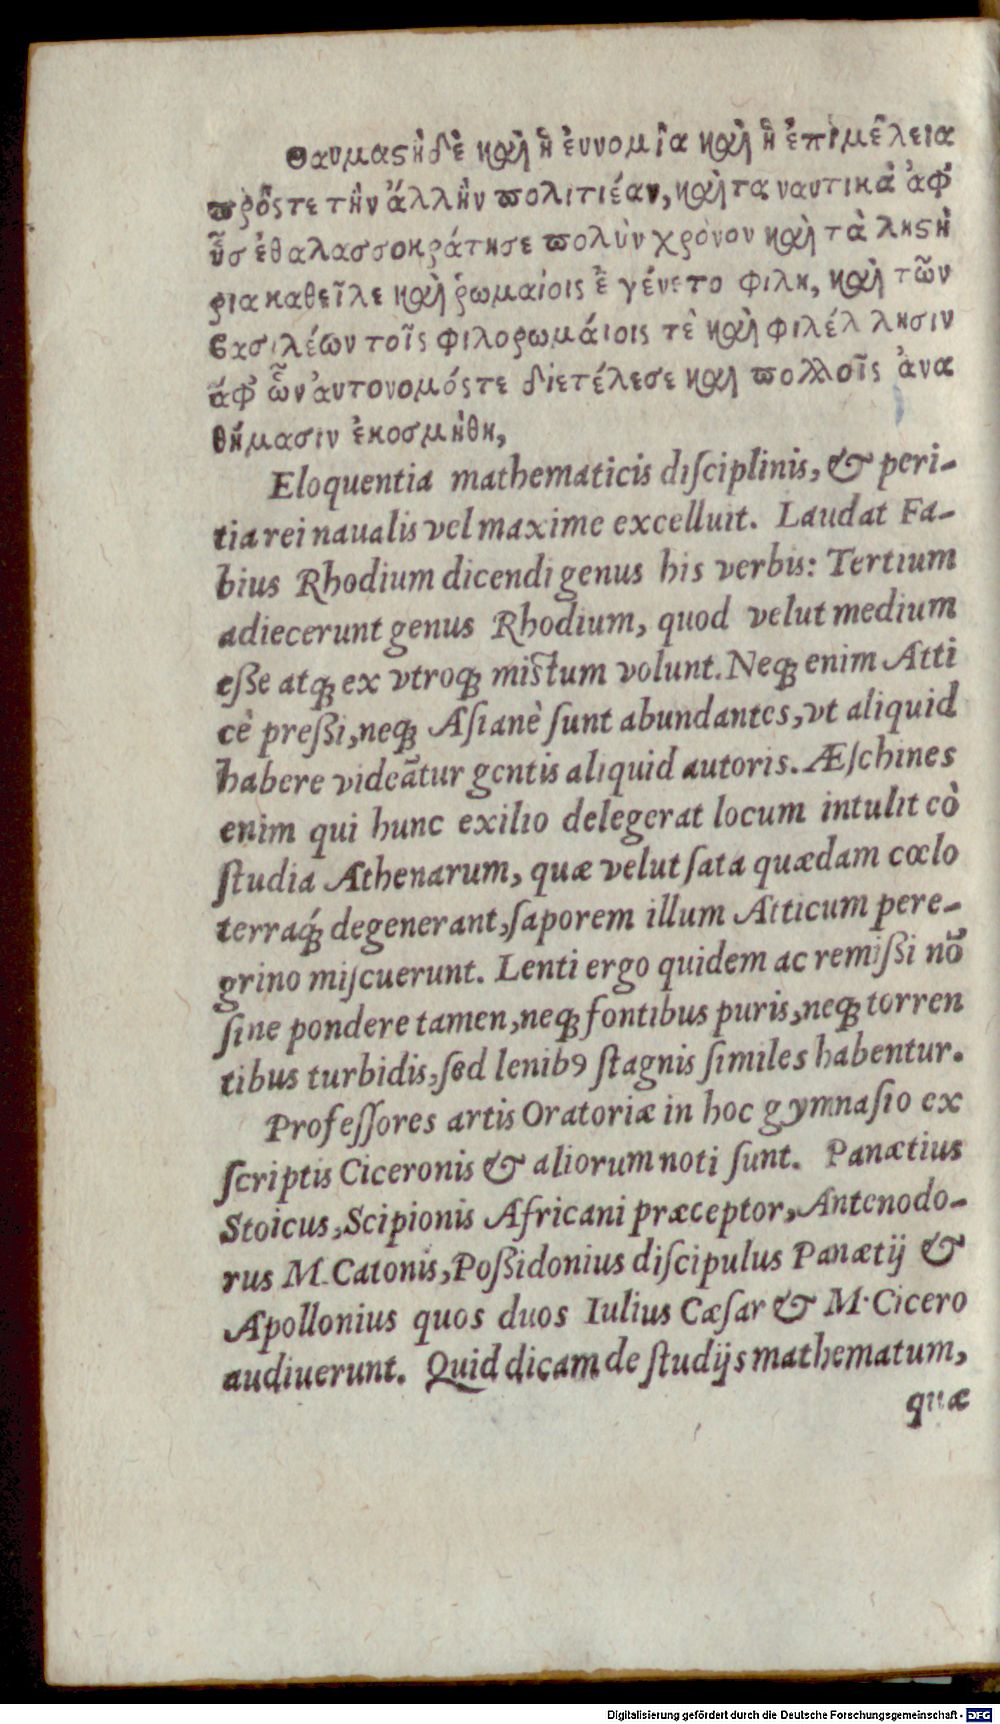 θαυμαςὴ δὲ καὶ ἡ ἐυνομία καὶ ἡ ἐπιμέλεια
πρόςτε τὴν ἄλλην πολιτιέαν, καὶ τα ναυτικὰ ἀφ'
ἧσ ἐθαλασσοκράτησε πολὺν χρόνον καὶ τὰ ληςὴ
ρια καθεῖλε καὶ ῥωμαίοις ἐ γένετο φιλη, καὶ τῶν
βασιλέων τοῖς φιλορωμάιοις τὲ καὶ φιλέλ λησιν
ἀφ' ὧν ἀυτονομόςτε διετέλεσε καὶ πολλοῖς ἀνα
θήμασιν ἐκοσμήθη,
Eloquentia mathematicis diſciplinis, & peri-
tia rei naualis vel maxime excelluit. Laudat Fa-
bius Rhodium dicendi genus his verbis: Tertium
adiecerunt genus Rhodium, quod velut medium
eſſe atq; ex vtroq; miſtum volunt. Neq; enim Atti
cè preſſi, neq; Aſianè ſunt abundantes, vt aliquid
habere videātur gentis aliquid autoris. Æſchines
enim qui hunc exilio delegerat locum intulit eò
ſtudia Athenarum, quæ velut ſata quædam cœlo
terraq́; degenerant, ſaporem illum Atticum pere-
grino miſcuerunt. Lenti ergo quidem ac remiſſi nō
ſine pondere tamen, neq; fontibus puris, neq; torren
tibus turbidis, ſed lenibꝰ ſtagnis ſimiles habentur.
Profeſſores artis Oratoriæ in hoc gymnaſio ex
ſcriptis Ciceronis & aliorum noti ſunt. Panætius
Stoicus, Scipionis Africani præceptor, Antenodo-
rus M. Catonis, Poſſidonius diſcipulus Panætij &
Apollonius quos duos Iulius Cæſar & M. Cicero
audiuerunt. Quid dicam de ſtudijs mathematum,
quæ
Digitalisierung gefördert durch die Deutsche Forschungsgemeinschaft - DFG